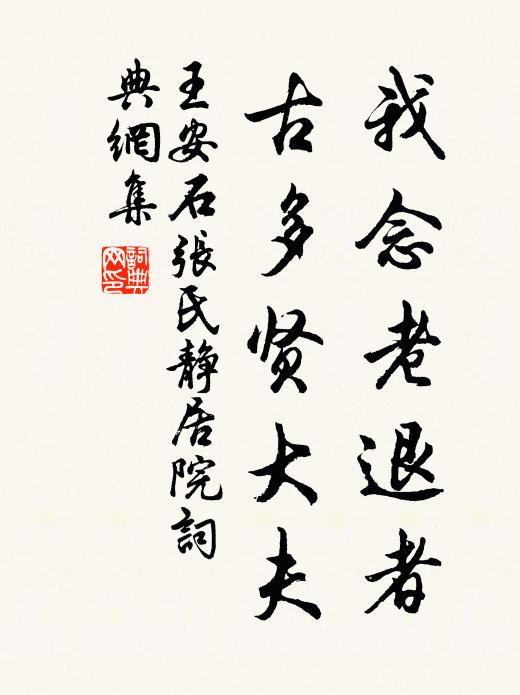 我念老退者
古多贤大夫
王安石張氏静居院詞
典網集
詞典网印